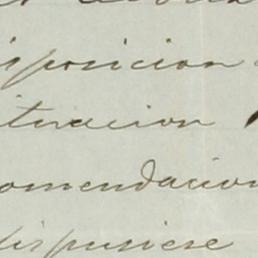 isposicion
ituacion
omendacion
dispusiese